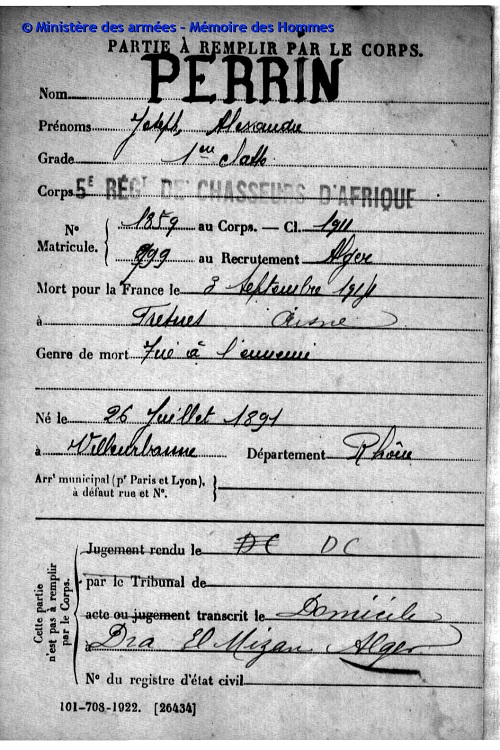 © Ministère des armées - Mémoire des Hommes
PARTIE À REMPLIR PAR LE CORPS.
Nom PERRIN
Prénoms Joseph, Alexandre
Grade 1ère classe
Corps 5E RÉGT DE CHASSEURS D'AFRIQUE
N° Matricule. { 1859 au Corps. — Cl. 1911
899 au Recrutement Alger
Mort pour la France le 3 Septembre 1914
à Aisne
Genre de mort Tué à l'ennemi
Né le 26 Juillet 1891
à Villeurbanne Département Rhône
Arrt municipal (pr Paris et Lyon), à défaut rue et N°. }
Cette partie n'est pas à remplir par le Corps. {
Jugement rendu le DC DC
par le Tribunal de
acte ou jugement transcrit le Domicile
à Dra El Mizan Alger
N° du registre d'état civil
101-708-1922. [26434]